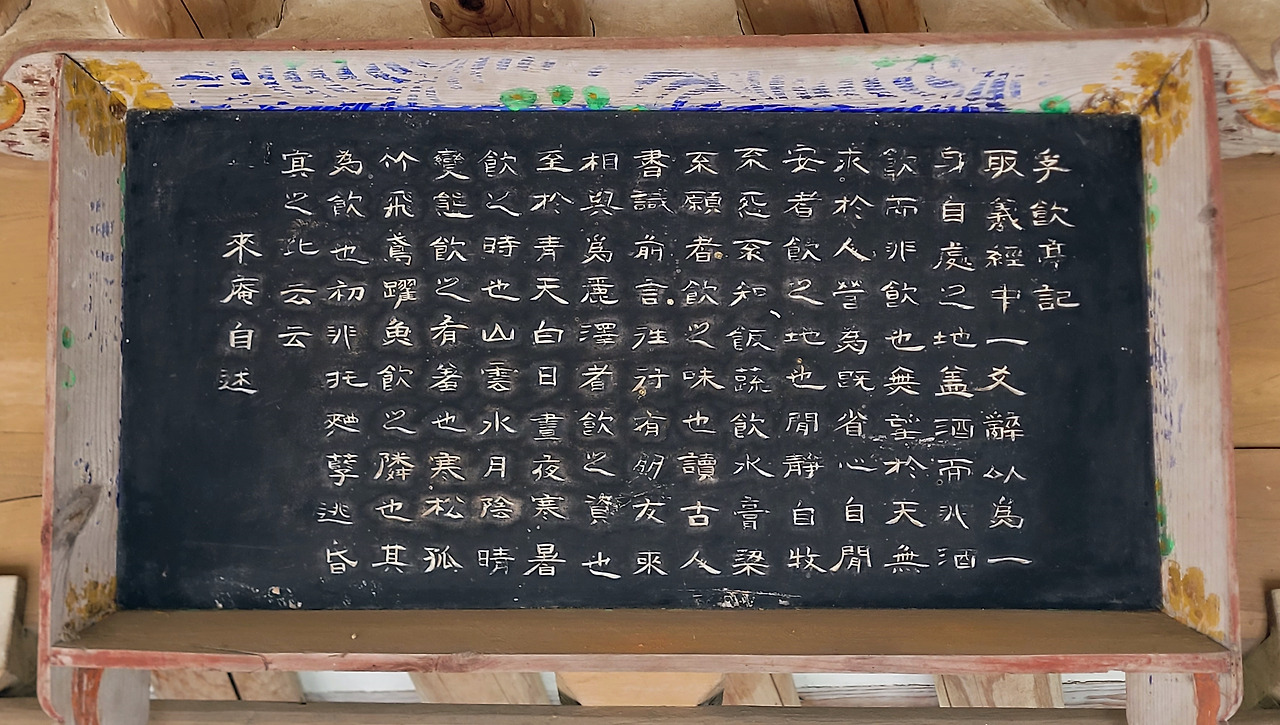 孚飮亭記
取羲經中一爻辭以爲一
身自處之地盖酒而非酒
飮而非飮也無望於天無
求於人營爲旣省心自閒
安者飮之地也閒靜自牧
不不知飯蔬飮水膏梁
不願者飮之味也讀古人
書識前言往行有朋友來
相與爲麗澤者飮之資也
至於青天白日晝夜寒暑
飮之時也山雲水月陰晴
變態飮之肴羞也寒松孤
竹飛鳶躍魚飮之隣也其
為飮也初非托麯孼逃昏
冥之比云云
來庵自述